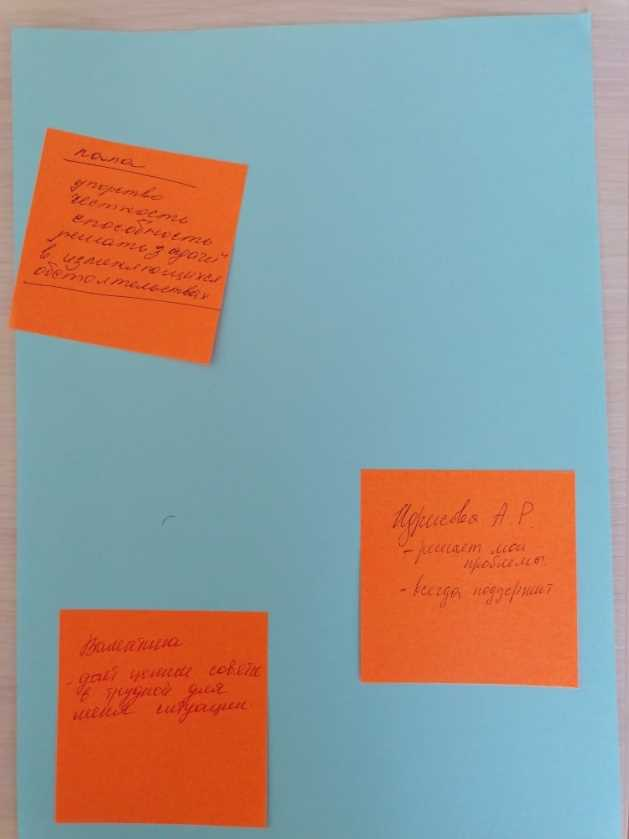 папа
упорство
честность
способность
решать задачи
в изменяющихся
обстоятельствах
Идрисова А.Р.
- решает мои
проблемы
- всегда поддержит
Валентина
- даёт ценные советы
в трудной для
меня ситуации